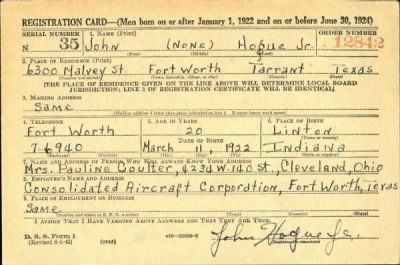 REGISTRATION CARD—(Men born on or after January 1, 1922 and on or before June 30, 1924)
SERIAL NUMBER 1. NAME (Print) ORDER NUMBER
N 35 John (NONE) Hogue Jr. 12842
(First) (Middle) (Last)
2. PLACE OF RESIDENCE (Print)
6300 Malvey St. Fort Worth Tarrant Texas
(Number and street) (Town, township, village, or city) (County) (State)
[THE PLACE OF RESIDENCE GIVEN ON THE LINE ABOVE WILL DETERMINE LOCAL BOARD
JURISDICTION; LINE 2 OF REGISTRATION CERTIFICATE WILL BE IDENTICAL]
3. MAILING ADDRESS
Same
[Mailing address if other than place indicated on line 2. If same insert word same]
4. TELEPHONE 5. AGE IN YEARS 6. PLACE OF BIRTH
Fort Worth 20 Linton
DATE OF BIRTH (Town or county)
7-6940 March 11, 1922 Indiana
(Exchange) (Number) (Mo.) (Day) (Yr.) (State or country)
7. NAME AND ADDRESS OF PERSON WHO WILL ALWAYS KNOW YOUR ADDRESS
Mrs. Pauline Coulter, 4234 W. 140 St., Cleveland, Ohio
8. EMPLOYER'S NAME AND ADDRESS
Consolidated Aircraft Corporation, Fort Worth, Texas
9. PLACE OF EMPLOYMENT OR BUSINESS
Same
(Number and street or R. F. D. number) (Town) (County) (State)
I AFFIRM THAT I HAVE VERIFIED ABOVE ANSWERS AND THAT THEY ARE TRUE.
D. S. S. Form 1
(Revised 6-1-42) (over) John Hogue Jr.